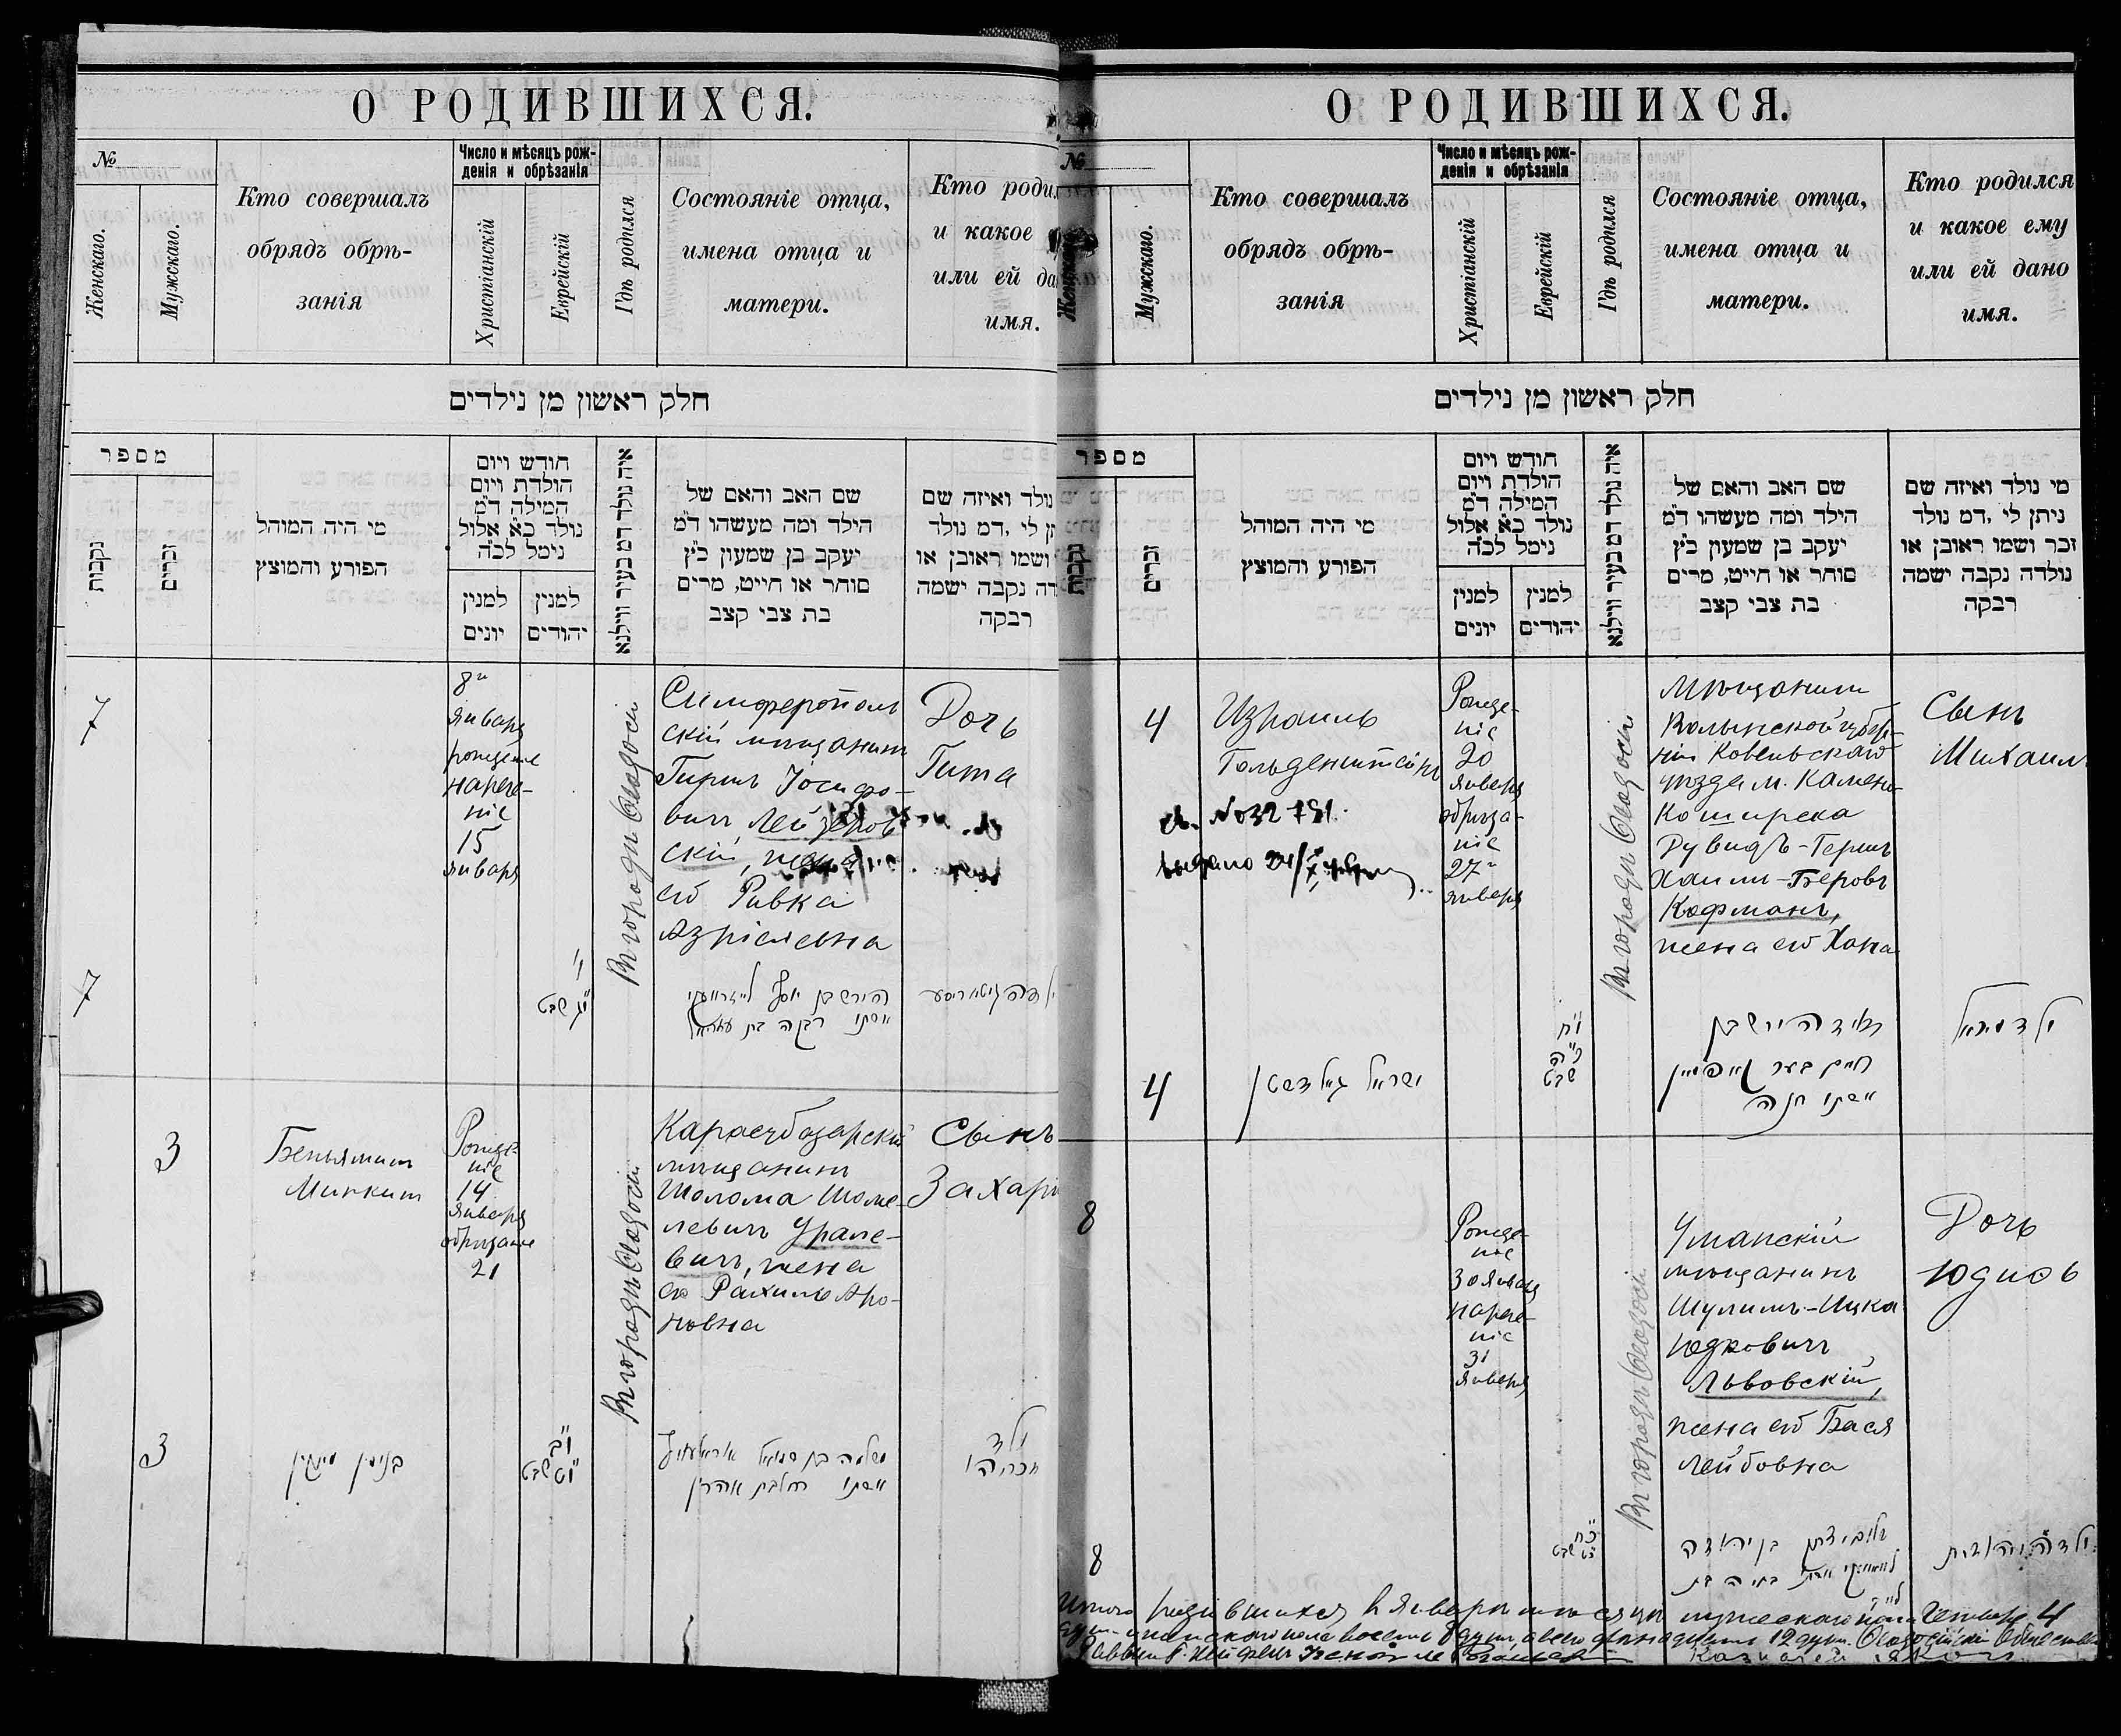 О РОДИВШИХСЯ.
№
Женскаго.
Мужскаго.
Кто совершалъ
обрядъ обрѣ-
занія
Число и мѣсяцъ рож-
денія и обрѣзанія
Христіанскій
Еврейскій
Гдѣ родился
Состояніе отца,
имена отца и
матери.
Кто родил
и какое
или ей да
имя.
חלק ראשון מן נילדים
מספר
נקבות
זכרים
מי היה המוהל
הפורע והמוצץ
חודש ויום
הולדת ויום
המילה ד"מ
נולד כ"א אלול
נימל לכ"ה
למנין
יונים
למנין
יהודים
איה נולד דמ בעיר ווילנא
שם האב והאם של
הילד ומה מעשהו ד"מ
יעקב בן שמעון כ"ץ
סוחר או חייט, מרים
בת צבי קצב
נולד ואיזה שם
תן לי ,דמ נולד
ושמו ראובן או
דה נקבה ישמה
רבקה
7
8
января
рожденіе
нарече-
ніе
15
января
Въ городѣ Ѳеодосіи
Симферополь
скій мѣщанинъ
Гиршъ Іосифо-
вичъ Лейзеров
скій, жена
его Ривка
Азріелевна
Дочь
Гита
7
י'
י"ג שבט
הירש בן יוסף
אשתו רבקה בת עזריאל
3
Беньяминъ
Минкинъ
Рожде-
ніе
14
января
обрѣзаніе
21
Въ городѣ Ѳеодосіи
Карасубазарскій
мѣщанинъ
Шолома Шоме-
левичъ Урале-
вичъ, жена
его Рахиль Аро-
новна
Сынъ
Захарі
3
בנימין מינקין
י"ב
י"ט שבט
שלמה בן שמואל
אשתו רחל בת אהרן
ילד
זכריהו
О РОДИВШИХСЯ.
№
Женскаго
Мужскаго.
Кто совершалъ
обрядъ обрѣ-
занія
Число и мѣсяцъ рож-
денія и обрѣзанія
Христіанскій
Еврейскій
Гдѣ родился
Состояніе отца,
имена отца и
матери.
Кто родился
и какое ему
или ей дано
имя.
חלק ראשון מן נילדים
מספר
נקבות
זכרים
מי היה המוהל
הפורע והמוצץ
חודש ויום
הולדת ויום
המילה ד"מ
נולד כ"א אלול
נימל לכ"ה
למנין
יונים
למנין
יהודים
איה נולד דמ בעיר ווילנא
שם האב והאם של
הילד ומה מעשהו ד"מ
יעקב בן שמעון כ"ץ
סוחר או חייט, מרים
בת צבי קצב
מי נולד ואיזה שם
ניתן לי ,דמ נולד
זכר ושמו ראובן או
נולדה נקבה ישמה
רבקה
4
Израиль
Гольденштейнъ
№ 032781
выдано 24/X
Рожде-
ніе
20
января
обрѣза-
ніе
27
января
Въ городѣ Ѳеодосіи
Мѣщанинъ
Волынской губер-
ніи Ковельскаго
уѣзда м. Камень-
Коширска
Дувидъ-Гершъ
Хаимъ-Беровъ
Кофманъ,
жена его Хана
Сынъ
Михаилъ
4
ישראל גאלדשטיין
י"ח
כ"ה
שבט
דוד הירש בן
חיים בער קויפמאן
אשתו חנה
ילד
8
Рожде-
ніе
30 января
нарече-
ніе
31
января
Въ городѣ Ѳеодосіи
Уманскій
мѣщанинъ
Шулимъ-Ицка
Юдковичъ
Львовскій,
жена его Бася
Лейбовна
Дочь
Юдиѳь
8
כ"ח
כ"ט שבט
בן יהודה
אשתו בתיה בת
לייב
ילדה יהודית
Итого родившихся въ январѣ мѣсяцѣ мужескаго пола четыре 4
душ женскаго пола восемь 8 душъ, а всего двѣнадцать 12 душъ. Ѳеодосійскій Обществен
Раввинъ
Казначей